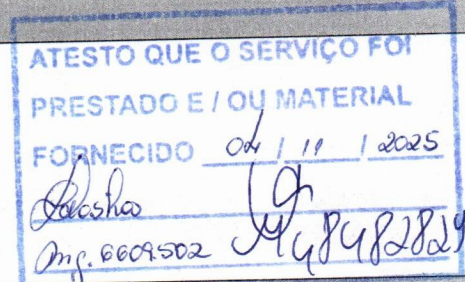 ATESTO QUE O SERVIÇO FOI
PRESTADO E / OU MATERIAL
FORNECIDO 04 / 11 / 2025
mg. 6609.502 M48482824